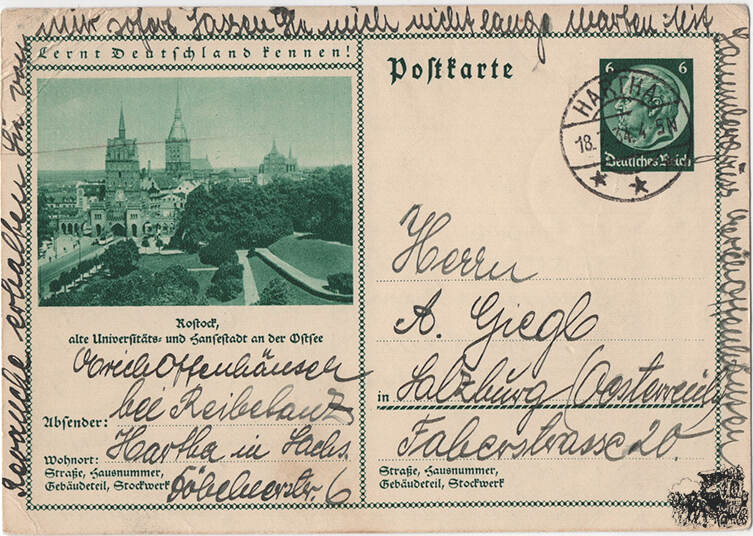 mir sofort Lassen Sie mich nicht lange warten
Lernt Deutschland kennen!
Revanche erhalten Sie von
Rostock,
alte Universitäts- und Hansestadt an der Ostsee
Absender:
bei Reibetanz
Wohnort: Hartha in Sachs
Straße, Hausnummer,
Gebäudeteil, Stockwerk 6
Postkarte
6 6
Deutsches Reich
HARTHA
18.
Herrn
A. Giegl
in Salzburg (Oesterreich)
Faberstrasse 20.
Straße, Hausnummer,
Gebäudeteil, Stockwerk